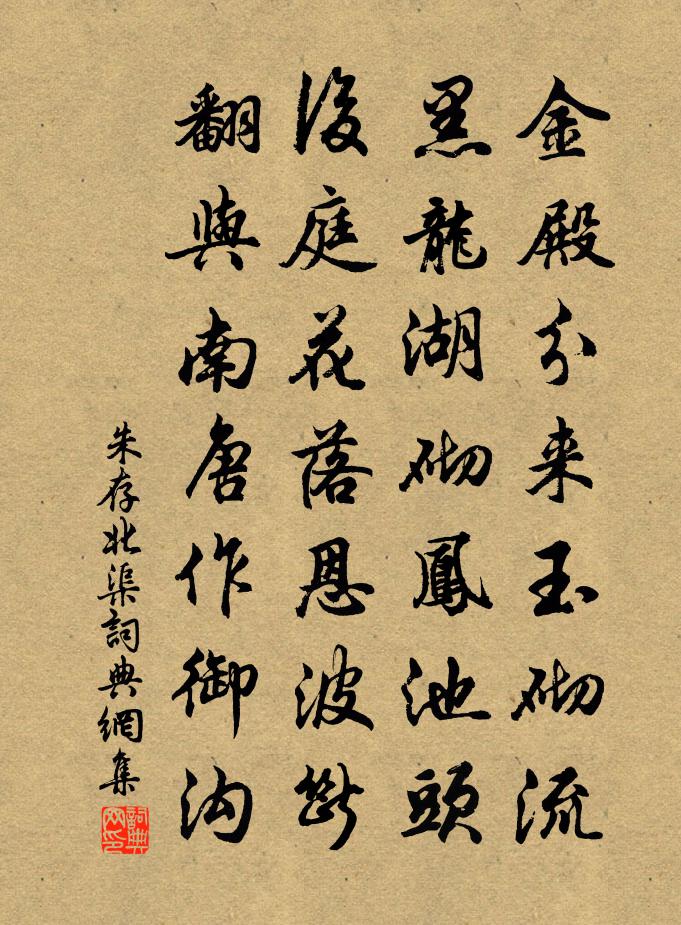 金殿分来玉砌流
黑龍湖砌鳳池頭
後庭花落恩波斷
翻與南唐作御沟
朱存北渠詞典網集
詞典网印